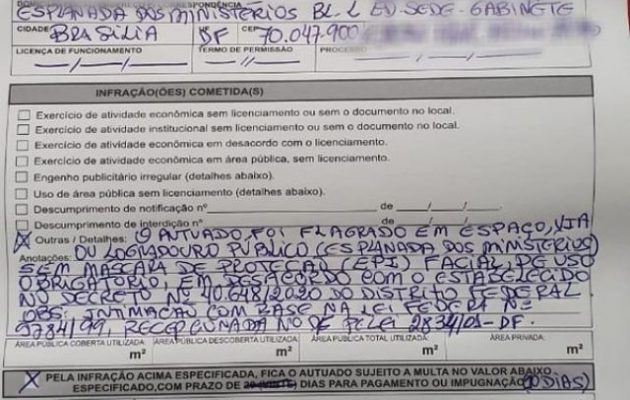 ESPLANADA DOS MINISTÉRIOS BL L ED. SEDE - GABINETE
CIDADE BRASÍLIA DF CEP 70.047.900
LICENÇA DE FUNCIONAMENTO TERMO DE PERMISSÃO PROCESSO
INFRAÇÃO(ÕES) COMETIDA(S)
Exercício de atividade econômica sem licenciamento ou sem o documento no local.
Exercício de atividade institucional sem licenciamento ou sem o documento no local.
Exercício de atividade econômica em desacordo com o licenciamento.
Exercício de atividade econômica em área pública, sem licenciamento.
Engenho publicitário irregular (detalhes abaixo).
Uso de área pública sem licenciamento (detalhes abaixo).
Descumprimento de notificação nº de / /
Descumprimento de interdição nº de / /
X Outras / Detalhes: O AUTUADO FOI FLAGRADO EM ESPAÇO, VIA
Anotações: OU LOGRADOURO PÚBLICO (ESPLANADA DOS MINISTÉRIOS)
SEM MÁSCARA DE PROTEÇÃO (EPI) FACIAL, DE USO
OBRIGATÓRIO, EM DESACORDO COM O ESTABELECIDO
NO DECRETO Nº 40.648/2020 DO DISTRITO FEDERAL
OBS: INTIMAÇÃO COM BASE NA LEI FEDERAL Nº
9784/99, RECEPCIONADA NO DF PELA LEI 2834/01-DF.
ÁREA PÚBLICA COBERTA UTILIZADA ÁREA PÚBLICA DESCOBERTA UTILIZADA ÁREA PÚBLICA TOTAL UTILIZADA ÁREA PRIVADA
m² m² m² m²
X PELA INFRAÇÃO ACIMA ESPECIFICADA, FICA O AUTUADO SUJEITO A MULTA NO VALOR ABAIXO
ESPECIFICADO, COM PRAZO DE 20 (VINTE) DIAS PARA PAGAMENTO OU IMPUGNAÇÃO (10 DIAS)